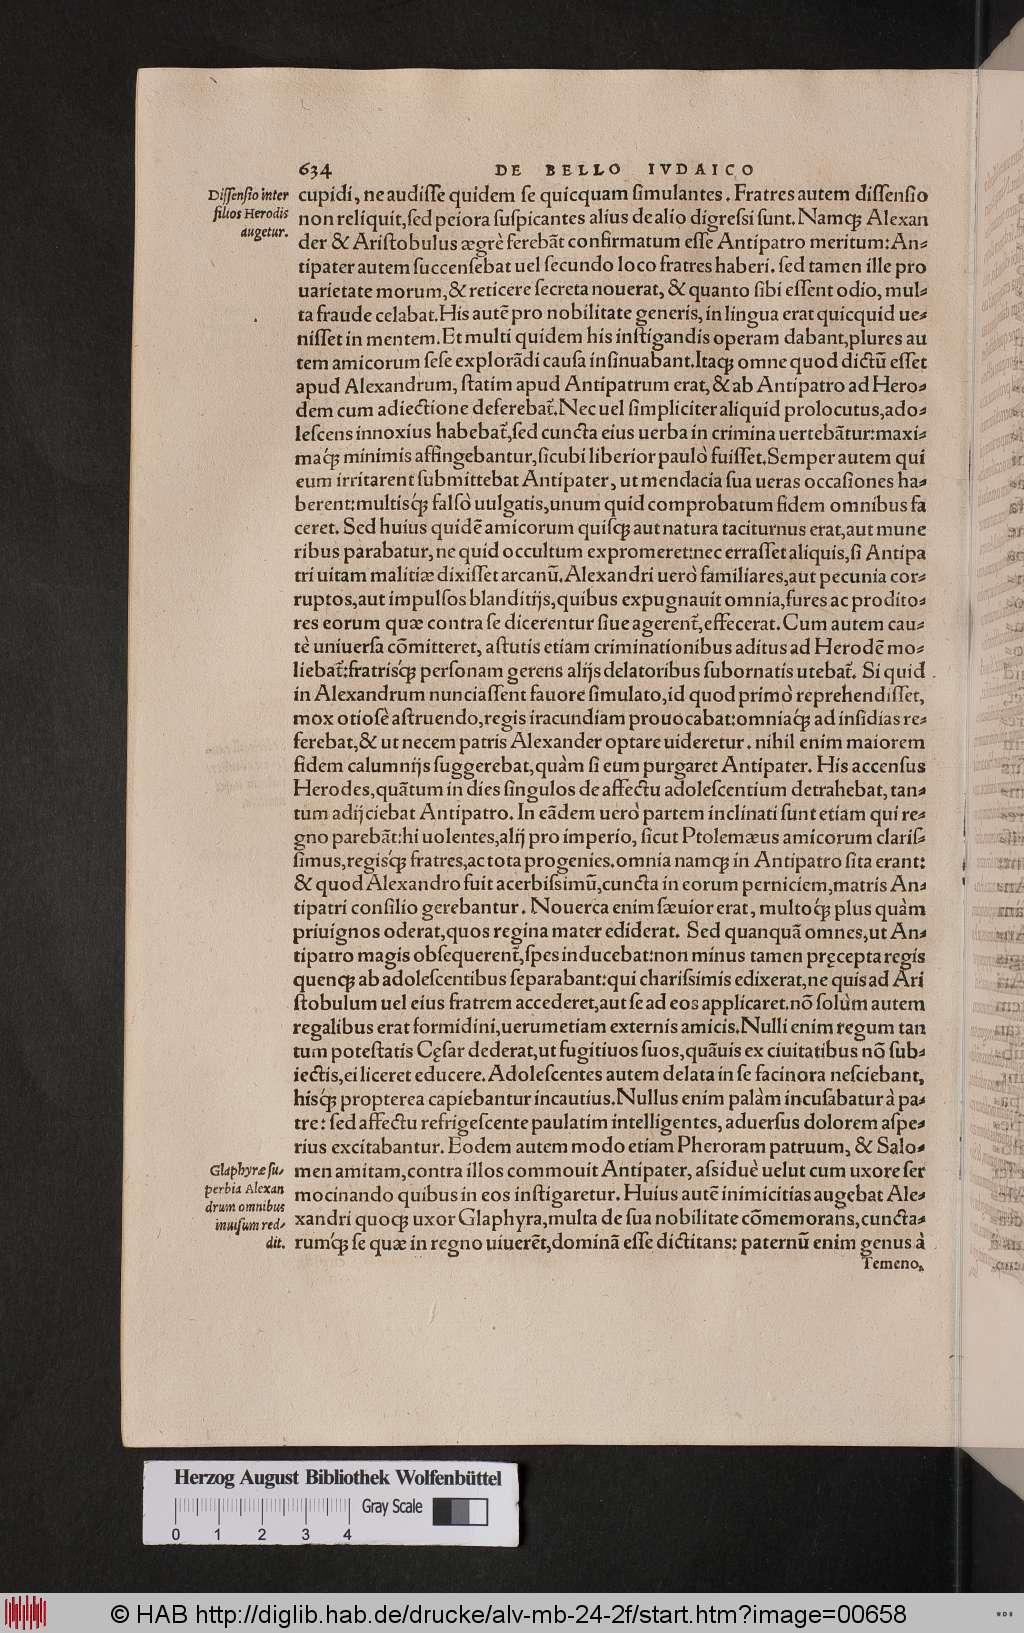 634 DE BELLO IVDAICO
Diſſenſio inter
filios Herodis
augetur.
cupidi, ne audiſſe quidem ſe quicquam ſimulantes. Fratres autem diſſenſio
non reliquit, ſed peiora ſuſpicantes alius de alio digreſsi ſunt. Namq́ꝫ Alexan
der & Ariſtobulus ægrè ferebãt confirmatum eſſe Antipatro meritum: An⸗
tipater autem ſuccenſebat uel ſecundo loco fratres haberi. ſed tamen ille pro
uarietate morum, & reticere ſecreta nouerat, & quanto ſibi eſſent odio, mul⸗
ta fraude celabat. His autẽ pro nobilitate generis, in lingua erat quicquid ue⸗
niſſet in mentem. Et multi quidem his inſtigandis operam dabant, plures au
tem amicorum ſeſe explorãdi cauſa inſinuabant. Itaqꝫ omne quod dictũ eſſet
apud Alexandrum, ſtatim apud Antipatrum erat, & ab Antipatro ad Hero⸗
dem cum adiectione deferebat̃. Nec uel ſimpliciter aliquid prolocutus, ado⸗
leſcens innoxius habebat̃, ſed cuncta eius uerba in crimina uertebãtur: maxi⸗
maq́ꝫ minimis affingebantur, ſicubi liberior paulò fuiſſet. Semper autem qui
eum irritarent ſubmittebat Antipater, ut mendacia ſua ueras occaſiones ha⸗
berent: multisq́ꝫ falſò uulgatis, unum quid comprobatum fidem omnibus fa
ceret. Sed huius quidẽ amicorum quiſqꝫ aut natura taciturnus erat, aut mune
ribus parabatur, ne quid occultum expromeret: nec erraſſet aliquis, ſi Antipa
tri uitam malitiæ dixiſſet arcanũ. Alexandri uerò familiares, aut pecunia cor⸗
ruptos, aut impulſos blanditijs, quibus expugnauit omnia, fures ac prodito⸗
res eorum quæ contra ſe dicerentur ſiue agerent̃, effecerat. Cum autem cau⸗
tè uniuerſa cõmitteret, aſtutis etiam criminationibus aditus ad Herodẽ mo⸗
liebat̃: fratrisq́ꝫ perſonam gerens alijs delatoribus ſubornatis utebat̃. Si quid
in Alexandrum nunciaſſent fauore ſimulato, id quod primò reprehendiſſet,
mox otioſè aſtruendo, regis iracundiam prouocabat: omniaq́ꝫ ad inſidias re⸗
ferebat, & ut necem patris Alexander optare uideretur. nihil enim maiorem
fidem calumnijs ſuggerebat, quàm ſi eum purgaret Antipater. His accenſus
Herodes, quãtum in dies ſingulos de affectu adoleſcentium detrahebat, tan⸗
tum adijciebat Antipatro. In eãdem uerò partem inclinati ſunt etiam qui re⸗
gno parebãt: hi uolentes, alij pro imperio, ſicut Ptolemæus amicorum clariſ⸗
ſimus, regisq́ꝫ fratres, ac tota progenies. omnia namqꝫ in Antipatro ſita erant:
& quod Alexandro fuit acerbiſsimũ, cuncta in eorum perniciem, matris An⸗
tipatri conſilio gerebantur. Nouerca enim ſæuior erat, multoq́ꝫ plus quàm
priuignos oderat, quos regina mater ediderat. Sed quanquã omnes, ut An⸗
tipatro magis obſequerent̃, ſpes inducebat: non minus tamen pręcepta regis
quenqꝫ ab adoleſcentibus ſeparabant: qui chariſsimis edixerat, ne quis ad Ari
ſtobulum uel eius fratrem accederet, aut ſe ad eos applicaret. nõ ſolùm autem
regalibus erat formidini, uerumetiam externis amicis. Nulli enim regum tan
tum poteſtatis Cęſar dederat, ut fugitiuos ſuos, quãuis ex ciuitatibus nõ ſub⸗
iectis, ei liceret educere. Adoleſcentes autem delata in ſe facinora neſciebant,
hisq́ꝫ propterea capiebantur incautius. Nullus enim palàm incuſabatur à pa⸗
tre: ſed affectu refrigeſcente paulatim intelligentes, aduerſus dolorem aſpe⸗
rius excitabantur. Eodem autem modo etiam Pheroram patruum, & Salo⸗
men amitam, contra illos commouit Antipater, aſsiduè uelut cum uxore ſer
mocinando quibus in eos inſtigaretur. Huius autẽ inimicitias augebat Ale⸗
xandri quoqꝫ uxor Glaphyra, multa de ſua nobilitate cõmemorans, cuncta⸗
rumq́ꝫ ſe quæ in regno uiuerẽt, dominã eſſe dictitans: paternũ enim genus à
Glaphyræ ſu⸗
perbia Alexan
drum omnibus
inuiſum red⸗
dit.
Temeno,
Herzog August Bibliothek Wolfenbüttel
Gray Scale
0 1 2 3 4
© HAB http://diglib.hab.de/drucke/alv-mb-24-2f/start.htm?image=00658